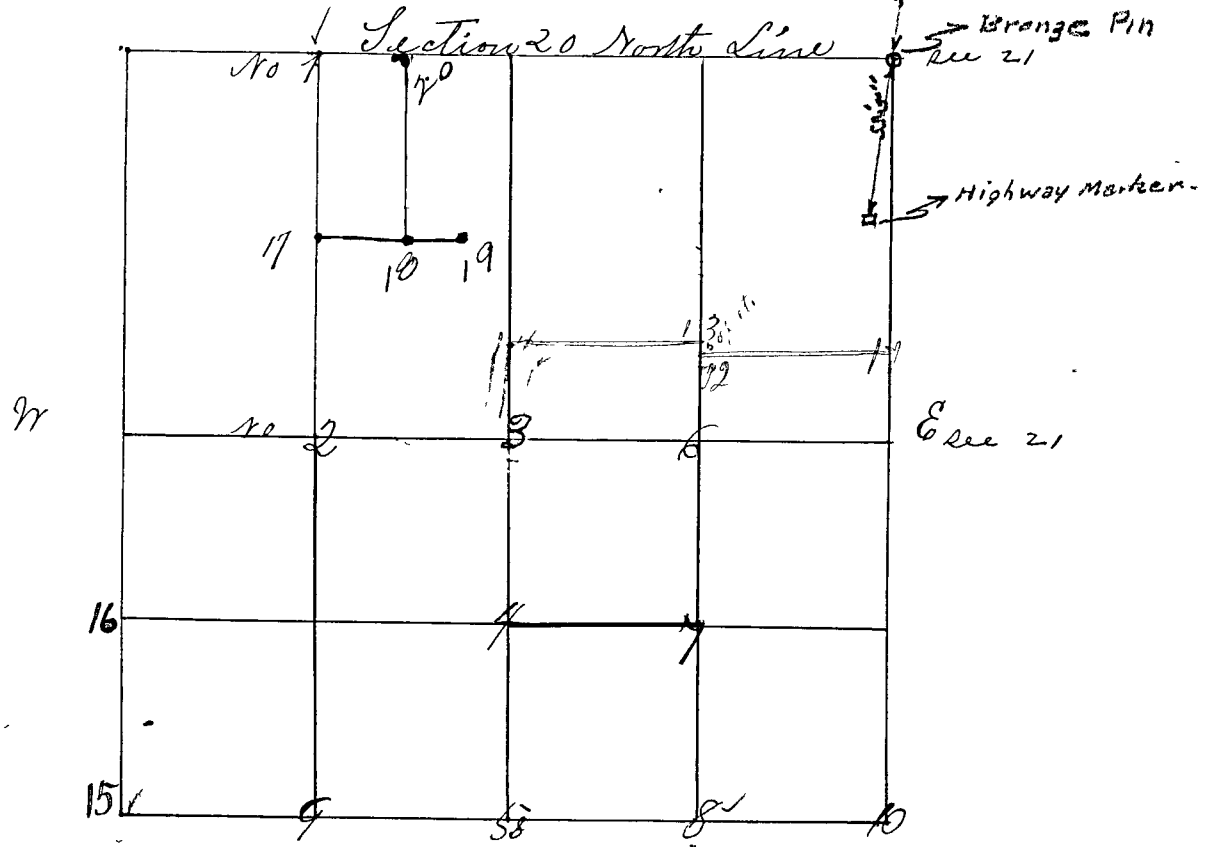 Section 20 North Line
Bronze Pin
see 21
No 1
20
Highway Marker.
17
18
19
14
13
12
11
W
No 2
3
6
E see 21
16
4
7
15
9
5
8
10